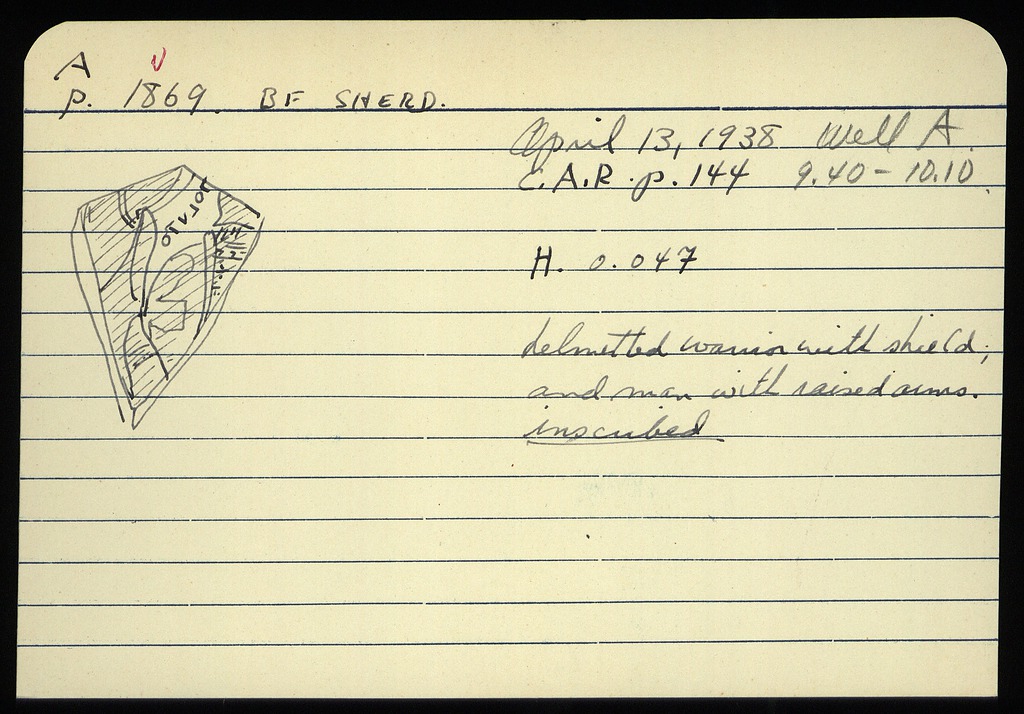 A
P. 1869. BF SHERD.
April 13, 1938 Well A.
C.A.R. p. 144 9.40 - 10.10.
H. 0.047
helmetted warrior with shield;
and man with raised arms.
inscribed